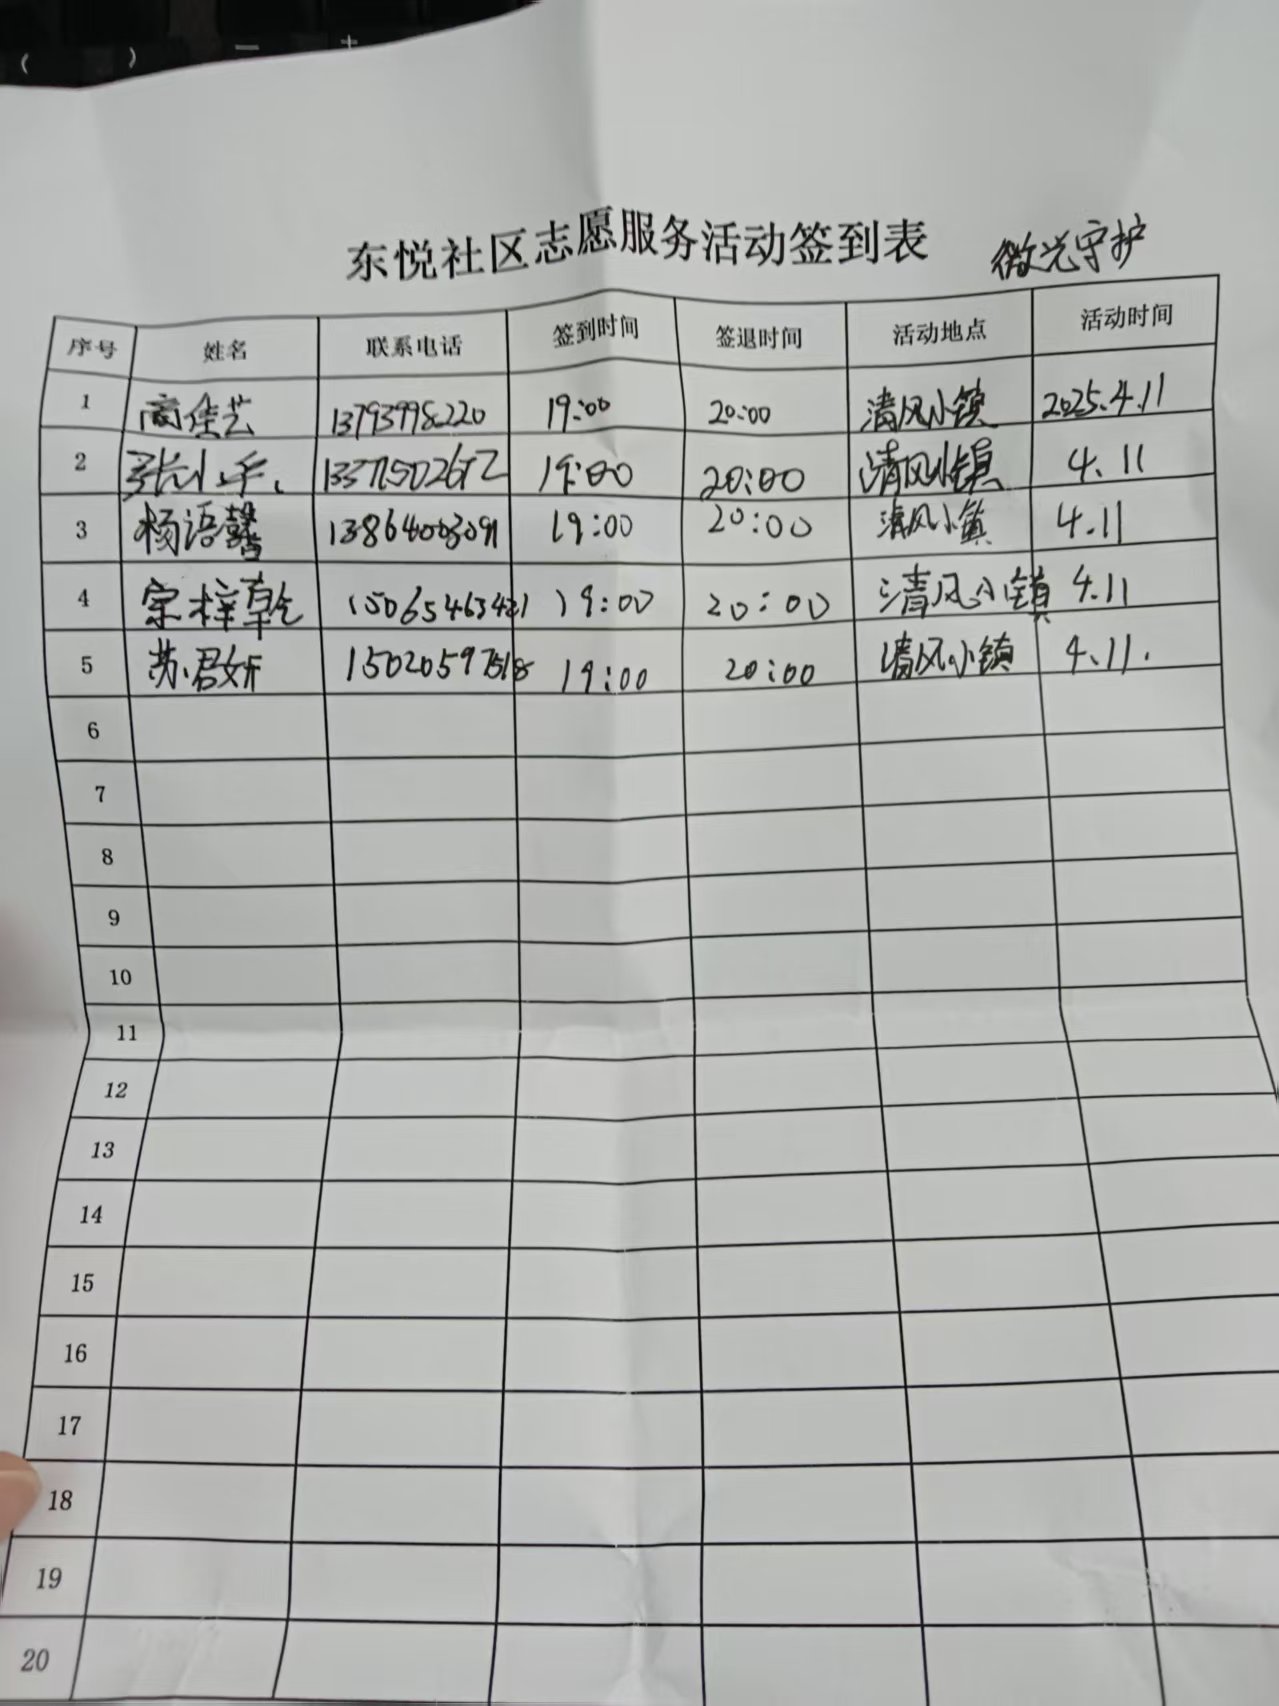 ( ) — +
东悦社区志愿服务活动签到表 微光守护
序号 姓名 联系电话 签到时间 签退时间 活动地点 活动时间
1 高佳艺 13793998220 19:00 20:00 清风小镇 2025.4.11
2 张小 19:00 20:00 清风小镇 4.11
3 杨语馨 13864003091 19:00 20:00 清风小镇 4.11
4 宗梓乾 15065463421 19:00 20:00 清风小镇 4.11
5 苏君妍 15020597518 19:00 20:00 清风小镇 4.11.
6
7
8
9
10
11
12
13
14
15
16
17
18
19
20